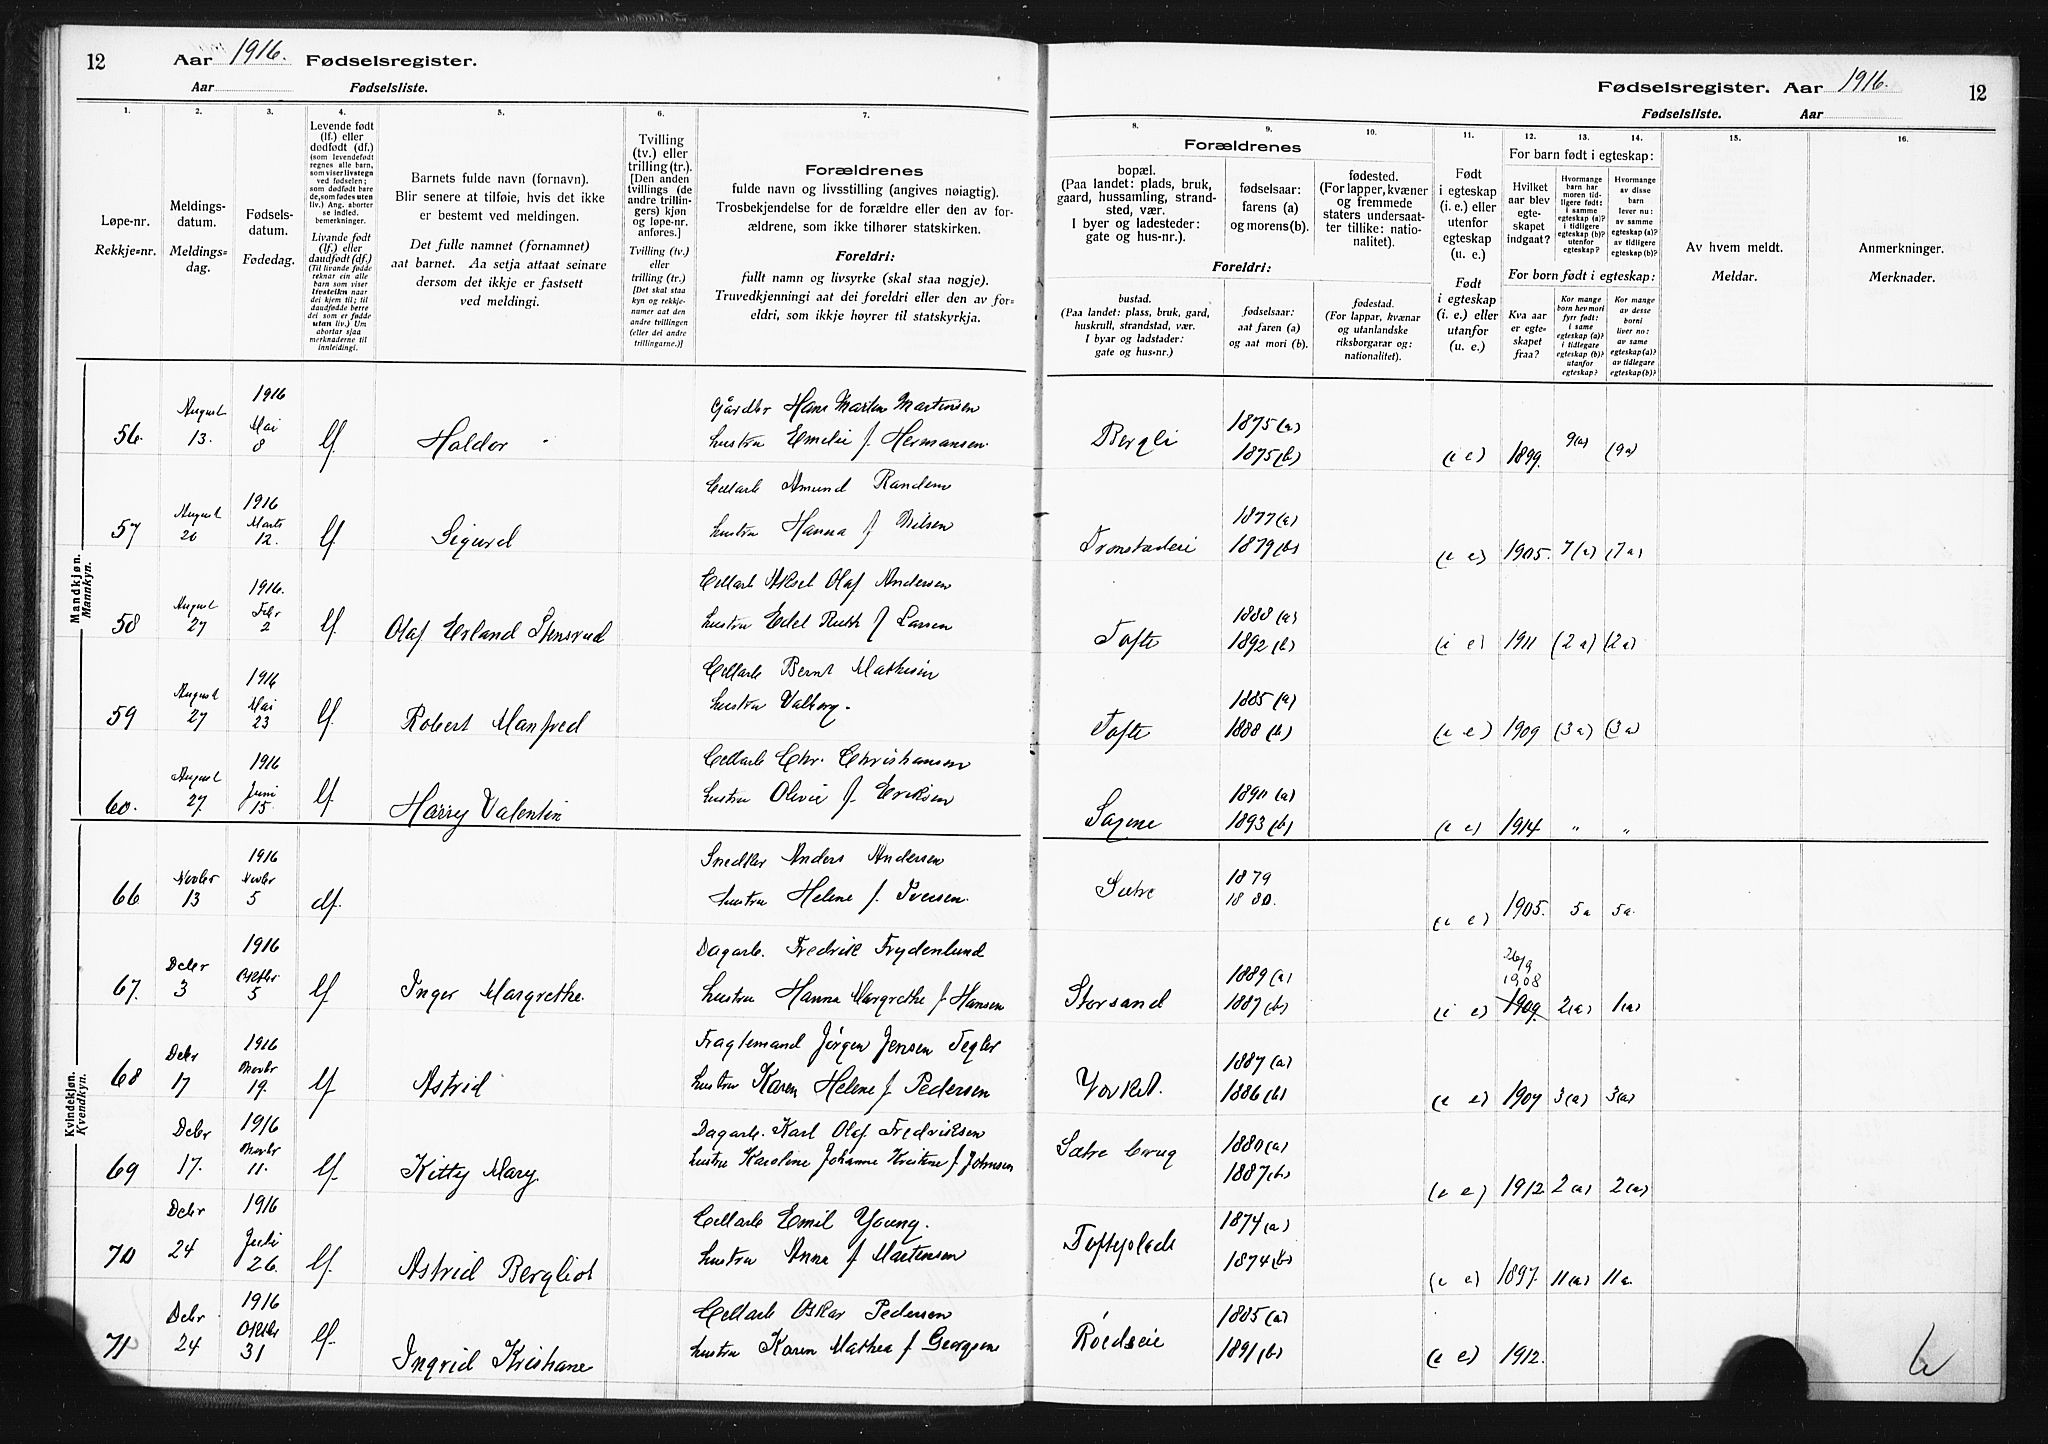 12 Aar 1916. Fødselsregister.
Aar Fødselsliste.
Fødselsregister. Aar 1916. 12
Fødselsliste. Aar
1. 2. 3. 4. 5. 6. 7. 8. 9. 10. 11. 12. 13. 14. 15. 16.
Løpe-nr.
Rekkje=nr.
Meldings-
datum.
Meldings=
dag.
Fødsels-
datum.
Fødedag.
Levende født
(lf.) eller
dødfødt (df.)
(som levendefødt
regnes alle barn,
som viser livstegn
ved fødselen;
som dødfødt bare
de, som fødes uten
liv.) Ang. aborter
se indled.
bemerkninger.
Livande født
(lf.) eller
daudfødt (df.)
(Til livande fødde
reknar ein alle
barn som viser
livsteikn naar
dei kjem til; til
daudfødde berre
dei som er fødde
utan liv.) Um
abortar sjaa
merknaderne til
innleidingi.
Barnets fulde navn (fornavn).
Blir senere at tilføie, hvis det ikke
er bestemt ved meldingen.
Det fulle namnet (fornamnet)
aat barnet. Aa setja attaat seinare
dersom det ikkje er fastsett
ved meldingi.
Tvilling
(tv.) eller
trilling (tr.).
[Den anden
tvillings (de
andre trillin-
gers) kjøn
og løpe-nr.
anføres.]
Tvilling (tv.)
eller
trilling (tr.)
[Det skal staa
kyn og rekkje-
numer aat den
andre tvillingen
(eller dei andre
trillingarne.)]
Forældrenes
fulde navn og livsstilling (angives nøiagtig).
Trosbekjendelse for de forældre eller den av for-
ældrene, som ikke tilhører statskirken.
Foreldri:
fullt namn og livsyrke (skal staa nøgje).
Truvedkjenningi aat dei foreldri eller den av for=
eldri, som ikkje høyrer til statskyrkja.
Forældrenes
bopæl.
(Paa landet: plads, bruk,
gaard, hussamling, strand-
sted, vær.
I byer og ladesteder:
gate og hus-nr.).
fødselsaar:
farens (a)
og morens (b).
fødested.
(For lapper, kvæner
og fremmede
staters undersaat-
ter tillike: natio-
nalitet).
Foreldri:
bustad.
(Paa landet: plass, bruk, gard,
huskrull, strandstad, vær.
I byar og ladstader:
gate og hus=nr.)
fødselsaar:
aat faren (a)
og aat mori (b).
fødestad.
(For lappar, kvænar
og utanlandske
riksborgarar og:
nationalitet).
Født
i egteskap
(i. e.) eller
utenfor
egteskap
(u. e.)
Født
i egteskap
(i. e.) eller
utanfor
egteskap
(u. e.)
For barn født i egteskap:
Hvilket
aar blev
egte-
skapet
indgaat?
Hvormange
barn har
moren tid-
ligere født:
i samme
egteskap (a)?
i tidligere
egteskap (b)?
utenfor
egteskap?
Hvormange
av disse
barn
lever nu:
av samme
egteskap (a)?
av tidligere
egteskap (b)?
For born født i egteskap:
Kva aar
er egte-
skapet
fraa?
Kor mange
born hev mori
fyrr født:
i same
egteskap (a)?
i tidlegare
egteskap (b)?
utanfor
egteskap?
Kor mange
av desse
borni
liver no:
av same
egteskap (a)?
av tidlegare
egteskap (b)?
Av hvem meldt.
Meldar.
Anmerkninger.
Merknader.
Mandkjøn.
Mannkyn.
56. August 13. 1916 Mai 8 lf. Haldor Gårdbr Hans Martin Martinsen
hustru Emelie f. Hermansen. Bergli 1875 (a) 1875 (b) (i e) 1899. 9(a) (9a)
57 August 20 1916 Marts 12. lf. Sigurd Cellarb Amund Randem
hustru Hanna f. Nilsen 1877 (a) 1879 (b) (i e) 1905. 7 (a) (7 a)
58 August 27 1916. Febr 2 lf. Olaf Erland Stensrud Cellarb Aksel Olaf Andersen
hustru Edel Ruth f Larsen Tofte 1888 (a) 1892 (b) (i e) 1911 (2 a) (2 a)
59 August 27 1916 Mai 23 lf. Robert Manfred Cellarb Bernt Mathisen
hustru Valborg. Tofte 1885 (a) 1888 (b) (i e) 1909 (3 a) (3 a)
60. August 27. 1916 Juni 15. lf. Harry Valentin Cellarb Chr. Christiansen
hustru Olivie f. Eriksen Sagene (a) 1893 (b) (i e) 1914 " "
Kvindekjøn.
Kvendkyn.
66 Novbr 13 1916 Novbr 5 df. Snedker Anders Andersen
hustru Helene f. Iversen. Sætre 1879 1880. (i e) 1905. 5a 5a.
67. Debr 3 1916 Oktbr 5 lf Inger Margrethe. Dagarb. Fredrik Frydenlund
hustru Hanna Margrethe f Hansen Storsand 1889 (a) 1887 (b) (i e) 26/9 1908 1909. 2(a) 1(a)
68 Debr 17 1916 Novbr 19. lf. Astrid Fragtemand Jørgen Jensen Tegler
hustru Karen Helene f Pedersen 1887 (a) 1886 (b) (i e) 1907 3(a) 3(a)
69 Debr 17. 1916 Novbr 11. lf. Kitty Mary. Dagarb. Karl Olaf Fredriksen
hustru Karoline Johanne Kristine f Johnsen Sætre brug 1880 (a) 1887 (b) (i e) 1912 2(a) 2(a)
70 Debr 24 1916 Juli 26. lf. Astrid Bergliot Cellarb Emil Young.
hustru Anna f Martinsen Tofteplads 1874 (a) 1874 (b) (i e) 1897. 11(a) 11a.
71 Debr 24 1916 Oktbr 31 lf. Ingrid Kristiane Cellarb Oskar Pedersen
hustru Karen Mathea f Georgsen Rødseie 1885 (a) 1891 (b) (i e) 1912.